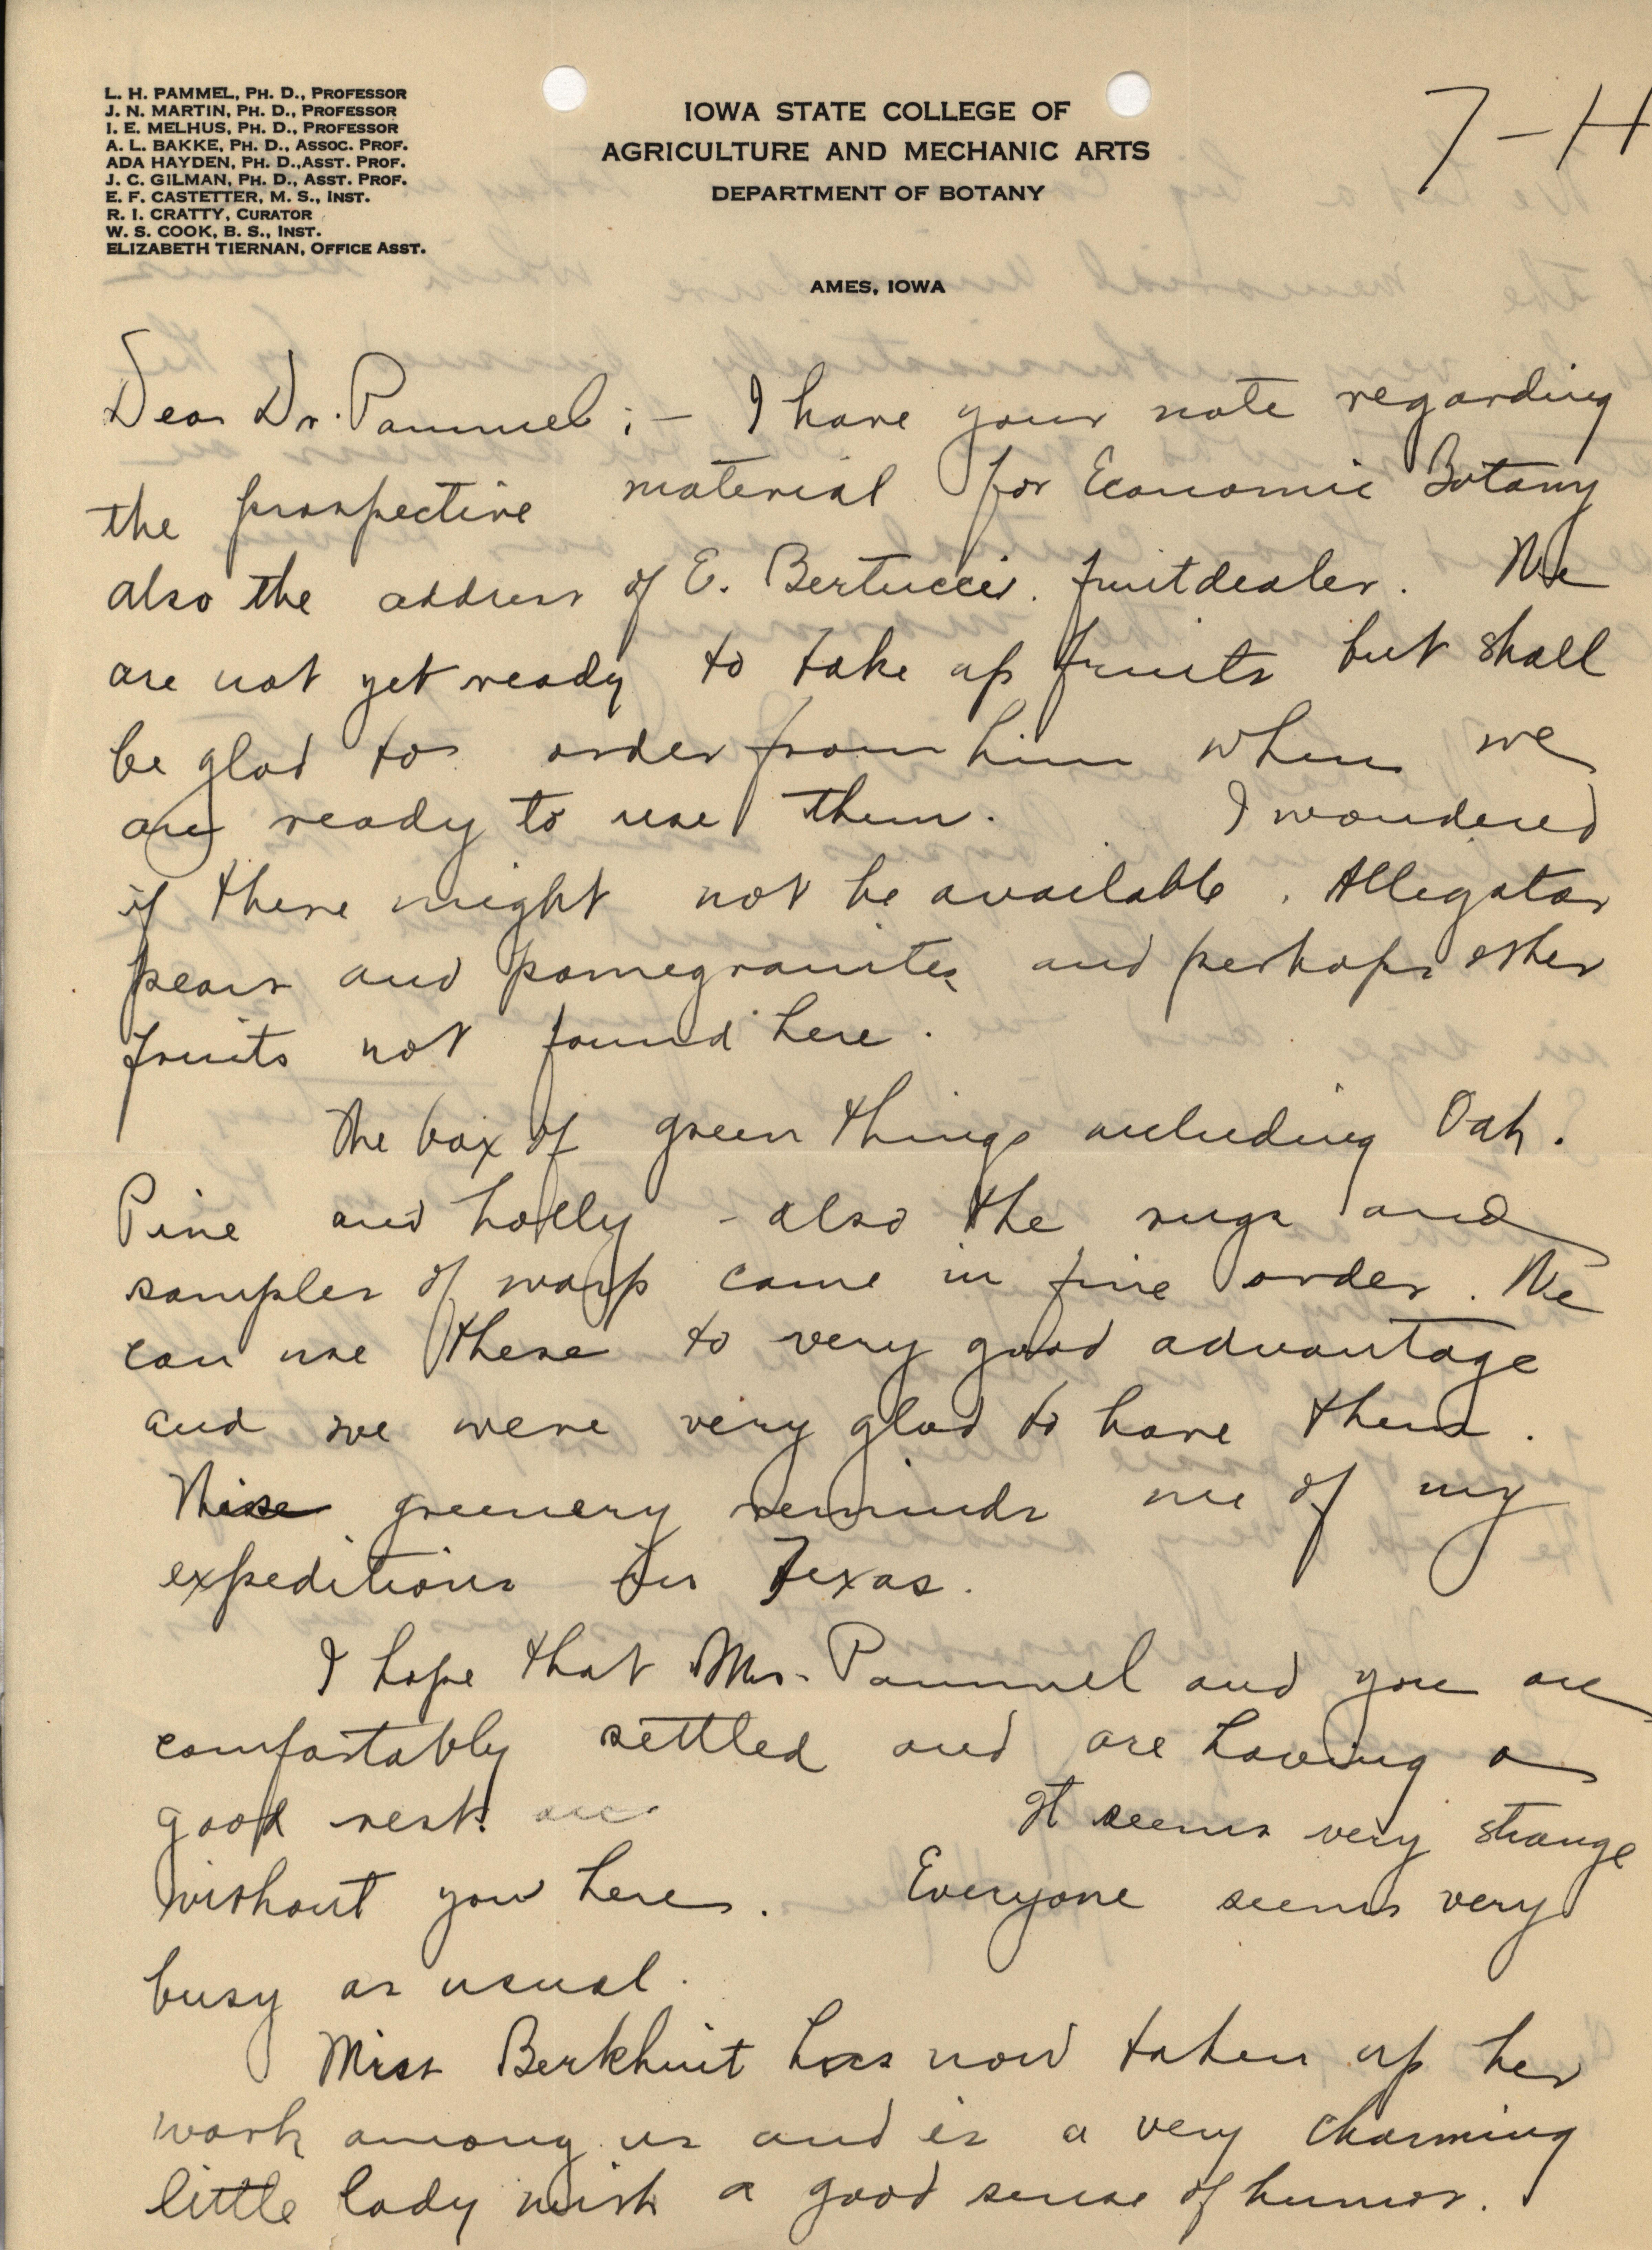 L. H. PAMMEL, PH. D., PROFESSOR
J. N. MARTIN, PH. D., PROFESSOR
I. E. MELHUS, PH. D., PROFESSOR
A. L. BAKKE, PH. D., ASSOC. PROF.
ADA HAYDEN, PH. D., ASST. PROF.
J. C. GILMAN, PH. D., ASST. PROF.
E. F. CASTETTER, M. S., INST.
R. I. CRATTY, CURATOR
W. S. COOK, B. S., INST.
ELIZABETH TIERNAN, OFFICE ASST.
IOWA STATE COLLEGE OF
AGRICULTURE AND MECHANIC ARTS
DEPARTMENT OF BOTANY
AMES, IOWA
7-H
Dear Dr. Pammel;- I have your note regarding
the prospective material for Economic Botany
also the address of E. Bertucci. fruitdealer. We
are not yet ready to take up fruits but shall
be glad to order from him when we
are ready to use them. I wondered
if there might not be available. Alligator
pears and pomegranites and perhaps other
fruits not found here.
The box of green things including Oak.
Pine and holly - also the rugs and
samples of warp came in fine order. We
can use these to very good advantage
and we were very glad to have them.
This greenery reminds me of my
expeditions in Texas.
I hope that Mrs. Pammel and you are
comfortably settled and are having a
good rest.
It seems very strange
without you here. Everyone seems very
busy as usual.
Miss Berkhuit has now taken up her
work among us and is a very charming
little lady with a good sense of humor.